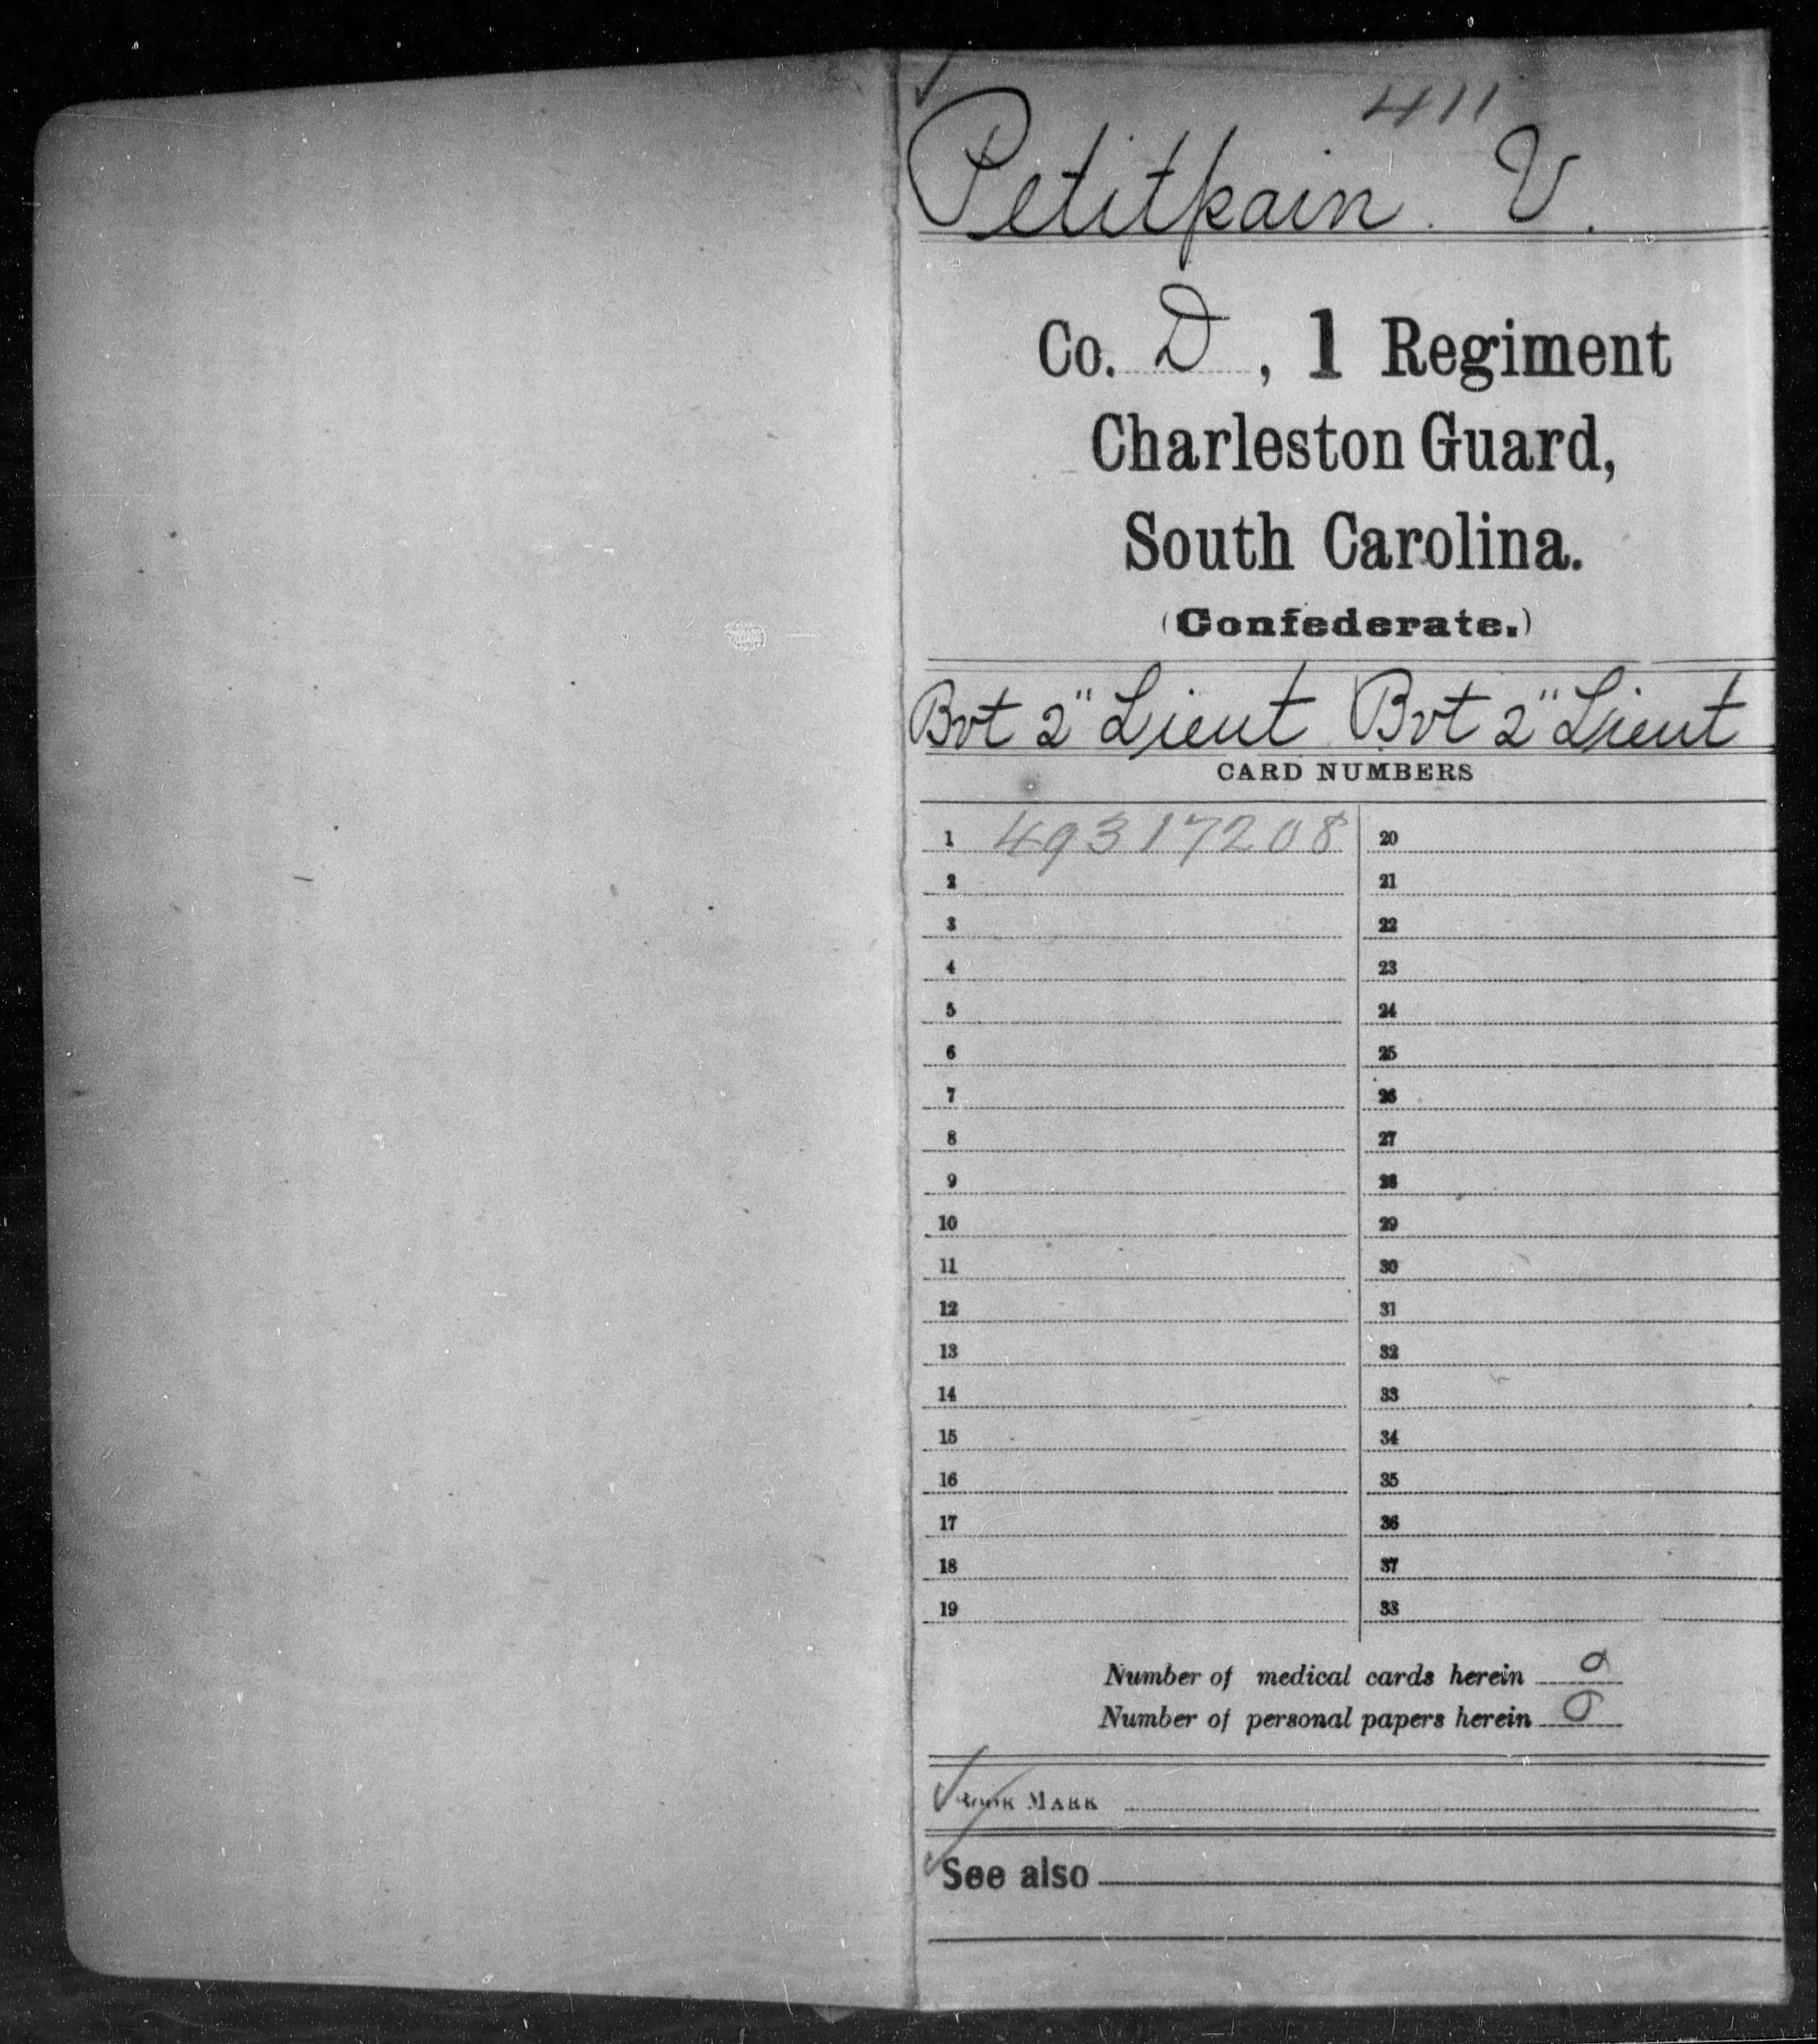 411
Petitpain. V.
Co. D, 1 Regiment
Charleston Guard,
South Carolina.
(Confederate.)
Bvt 2" Lieut Bvt 2" Lieut
CARD NUMBERS
1 49317208 20
2 21
3 22
4 23
5 24
6 25
7 26
8 27
9 28
10 29
11 30
12 31
13 32
14 33
15 34
16 35
17 36
18 37
19 38
Number of medical cards herein 0
Number of personal papers herein 0
BOOK MARK
See also